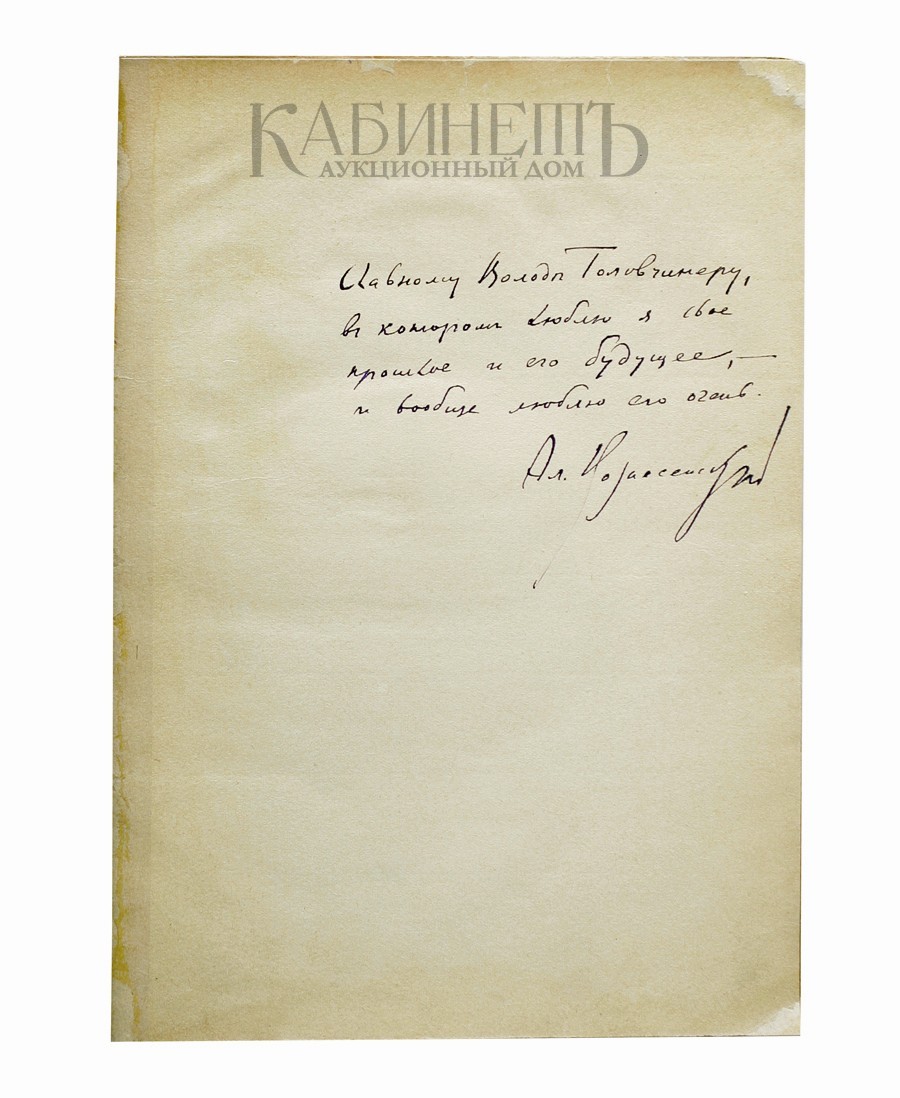 КАБИНЕТЪ
АУКЦИОННЫЙ ДОМ
Славному Володе Головчинеру,
в котором люблю я свое
прошлое и его будущее, —
и вообще люблю его очень.
Ал. Вознесенский